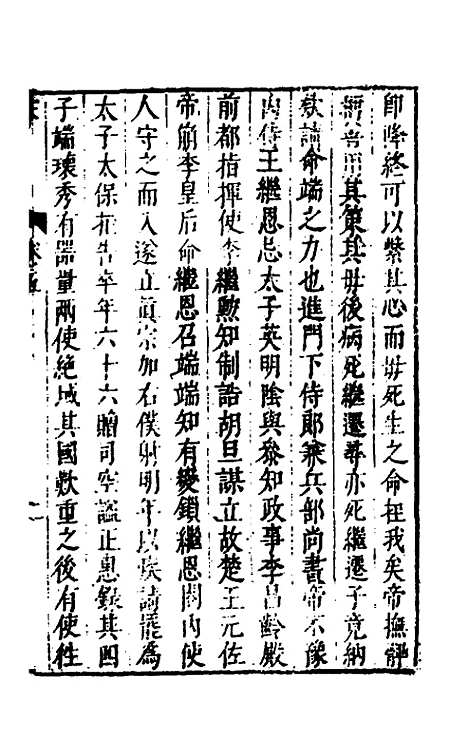 即降終可以繫其心而母死生之命在我矣帝撫髀
稱善用其策其母後病死繼遷尋亦死繼遷子竟納
欵請命端之力也進門下侍郎兼兵部尚書帝不豫
內侍王繼恩忌太子英明陰與叅知政事李昌齡殿
前都指揮使李繼勲知制誥胡旦謀立故楚王元佐
帝崩李皇后命繼恩召端端知有變鎖繼恩閤內使
人守之而入遂立眞宗加右僕射明年以疾請罷爲
太子太保在告卒年六十六贈司空謚正惠錄其四
子端瓌秀有器量兩使絕域其國歎重之後有使往